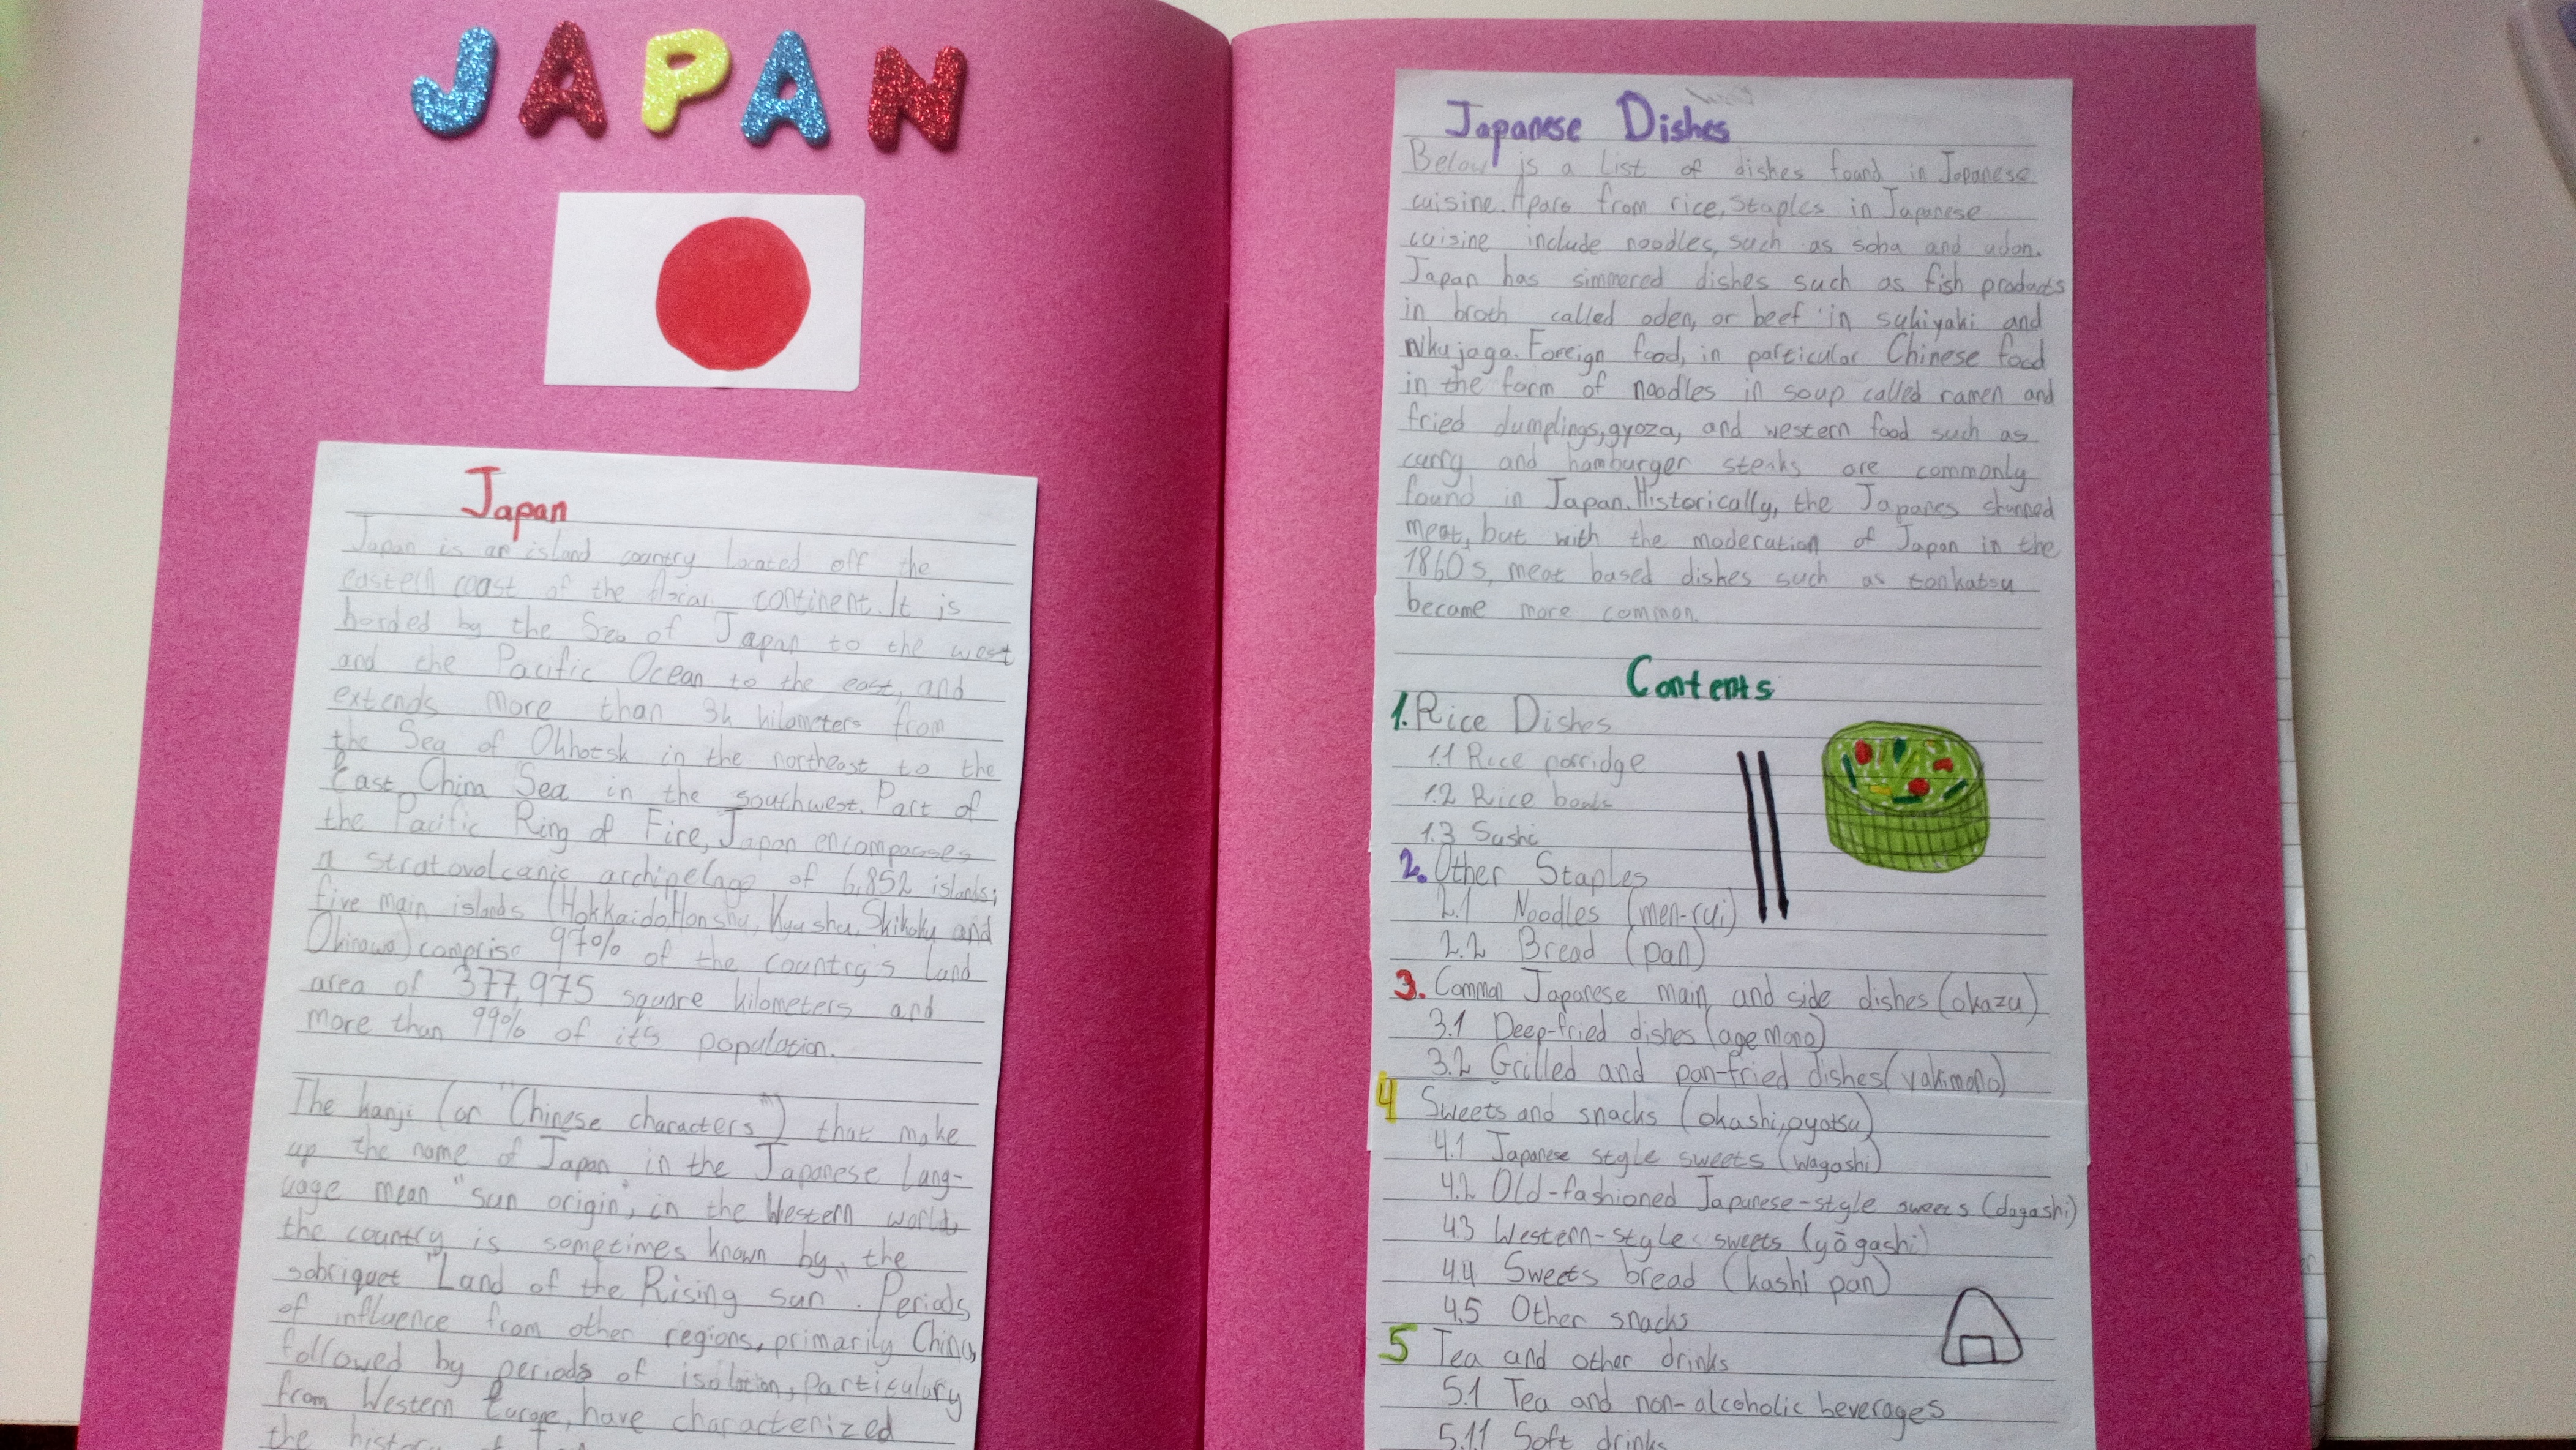 JAPAN
Japan
Japan is an island country located off the
eastern coast of the Asian continent. It is
borded by the Sea of Japan to the west
and the Pacific Ocean to the east, and
extends more than 3k kilometers from
the Sea of Okhotsk in the northeast to the
East China Sea in the southwest. Part of
the Pacific Ring of Fire, Japan encompasses
a stratovolcanic archipelago of 6,852 islands;
five main islands (Hokkaido, Honshu, Kyushu, Skikoku and
Okinawa) comprise 97% of the country's land
area of 377,975 square kilometers and
more than 99% of it's population.
The kanji (or "Chinese characters") that make
up the name of Japan in the Japanese lang-
uage mean "sun origin", in the Western world,
the country is sometimes known by the
sobriquet "Land of the Rising sun". Periods
of influence from other regions, primarily China,
followed by periods of isolation, particulary
from Western Europe, have characterized
the
Japanese Dishes
Below is a list of dishes found in Japanese
cuisine. Apare from rice, staples in Japanese
cuisine include noodles, such as soba and udon.
Japan has simmered dishes such as fish products
in broth called oden, or beef in sukiyaki and
nikujaga. Foreign food, in particular Chinese food
in the form of noodles in soup called ramen and
fried dumplings, gyoza, and western food such as
curry and hamburger steaks are commonly
found in Japan. Historically, the Japanes shunned
meat, but with the moderation of Japan in the
1860s, meat based dishes such as tonkatsu
became more common.
Contents
1. Rice Dishes
1.1 Rice porridge
1.2 Rice bowls
1.3 Sushi
2. Other Staples
2.1 Noodles (men-rui)
2.2 Bread (pan)
3. Common Japanese main and side dishes (okazu)
3.1 Deep-fried dishes (agemono)
3.2 Grilled and pan-fried dishes (yakimono)
4 Sweets and snacks (okashi, oyatsu)
4.1 Japanese style sweets (wagashi)
4.2 Old-fashioned Japanese-style sweets (dagashi)
4.3 Western-style sweets (yōgashi)
4.4 Sweets bread (kashi pan)
4.5 Other snacks
5 Tea and other drinks
5.1 Tea and non-alcoholic beverages
5.11 Soft drinks